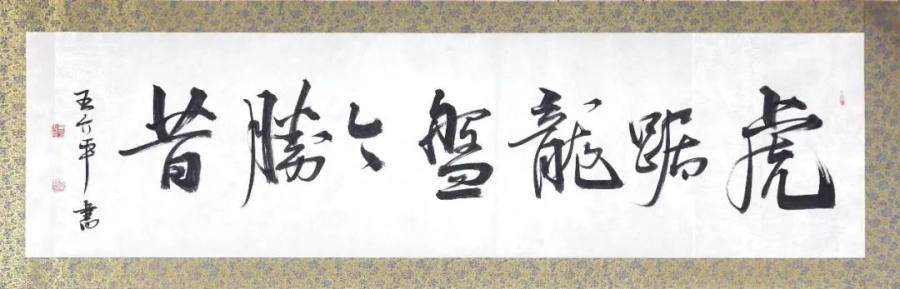 虎踞龍盤今勝昔
王介平書